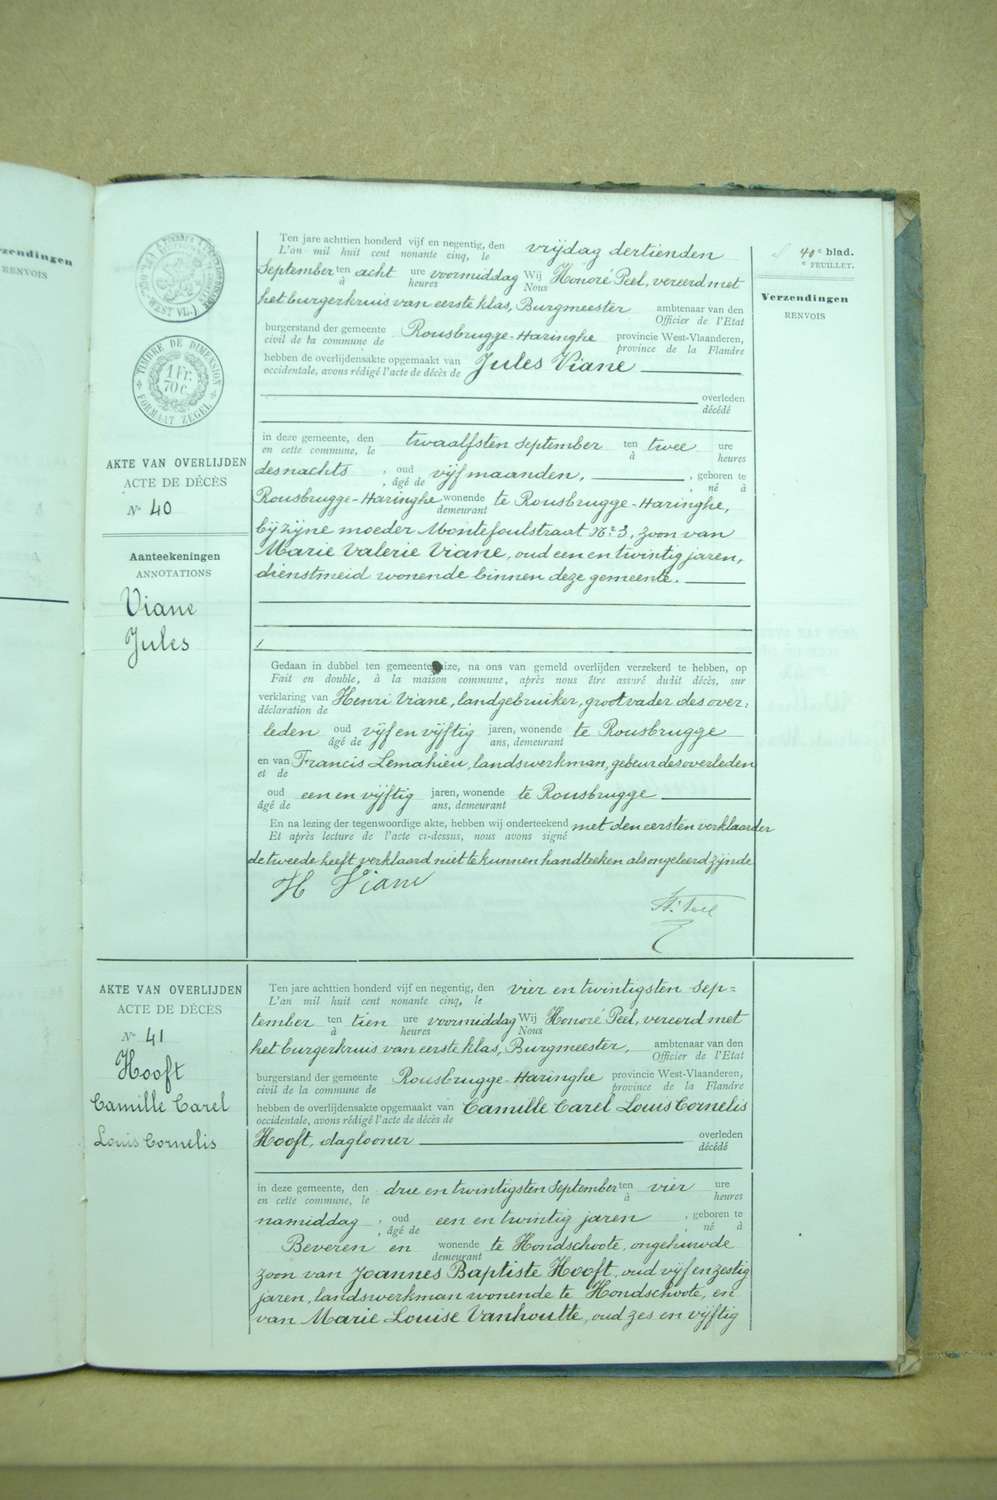 zendingen
RENVOIS
40e blad.
e FEUILLET.
Verzendingen
RENVOIS
TIMBRE DE DIMENSION
1 Fr.
70 c.
FORMAAT ZEGEL
AKTE VAN OVERLIJDEN
ACTE DE DÉCÈS
N° 40
Aanteekeningen
ANNOTATIONS
Viane
Jules
Ten jare achttien honderd vijf en negentig, den vrijdag dertienden
L'an mil huit cent nonante cinq, le
September ten acht ure voormiddag Wij Honoré Peel, vereerd met
à heures Nous
het burgerkruis van eerste klas, Burgmeester ambtenaar van den
Officier de l'Etat
burgerstand der gemeente Rousbrugge-Haringhe provincie West-Vlaanderen,
civil de la commune de province de la Flandre
hebben de overlijdensakte opgemaakt van Jules Viane
occidentale, avons rédigé l'acte de décès de
overleden
décédé
in deze gemeente, den twaalfsten September ten twee ure
en cette commune, le à heures
des nachts , oud vijf maanden, , geboren te
, âgé de , né à
Rousbrugge-Haringhe wonende te Rousbrugge-Haringhe,
demeurant
bij zijne moeder Montefoulstraat N° 3, zoon van
Marie Valerie Viane, oud een en twintig jaren,
dienstmeid wonende binnen deze gemeente.
Gedaan in dubbel ten gemeentehuize, na ons van gemeld overlijden verzekerd te hebben, op
Fait en double, à la maison commune, après nous être assuré dudit décès, sur
verklaring van Henri Viane, landgebruiker, grootvader des over-
déclaration de
leden oud vijf en vijftig jaren, wonende te Rousbrugge
âgé de ans, demeurant
en van Francis Lemahieu, landswerkman, gebeur des overleden
et de
oud een en vijftig jaren, wonende te Rousbrugge
âgé de ans, demeurant
En na lezing der tegenwoordige akte, hebben wij onderteekend met den eersten verklaarder
Et après lecture de l'acte ci-dessus, nous avons signé
de tweede heeft verklaard niet te kunnen handteeken als ongeleerd zijnde
H Viane
H. Peel
AKTE VAN OVERLIJDEN
ACTE DE DÉCÈS
N° 41
Hooft
Camille Carel
Louis Cornelis
Ten jare achttien honderd vijf en negentig, den vier en twintigsten Sep=
L'an mil huit cent nonante cinq, le
tember ten tien ure voormiddag Wij Honoré Peel, vereerd met
à heures Nous
het burgerkruis van eerste klas, Burgmeester, ambtenaar van den
Officier de l'Etat
burgerstand der gemeente Rousbrugge-Haringhe provincie West-Vlaanderen,
civil de la commune de province de la Flandre
hebben de overlijdensakte opgemaakt van Camille Carel Louis Cornelis
occidentale, avons rédigé l'acte de décès de
Hooft, daglooner overleden
décédé
in deze gemeente, den drie en twintigsten September ten vier ure
en cette commune, le à heures
namiddag , oud een en twintig jaren , geboren te
, âgé de , né à
Beveren en wonende te Hondschoote, ongehuwde
demeurant
zoon van Joannes Baptiste Hooft, oud vijf en zestig
jaren, landswerkman wonende te Hondschoote, en
van Marie Louise Vanhoutte, oud zes en vijftig